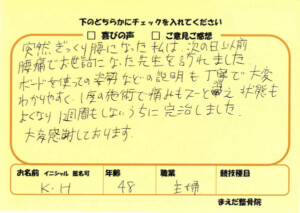 下のどちらかにチェックを入れてください
□ 喜びの声 □ ご意見ご感想
突然ぎっくり腰になった私は、次の日以前
腰痛でお世話になった先生を訪れました
ボードを使っての姿勢などの説明も丁寧で大変
わかりやすく、1度の施術で痛みもスーと消え 状態も
よくなり 1週間もしないうちに完治しました。
大変感謝しております。
お名前 イニシャル 匿名可 年齢 職業 競技種目
K.H 48 主婦
まえだ整骨院